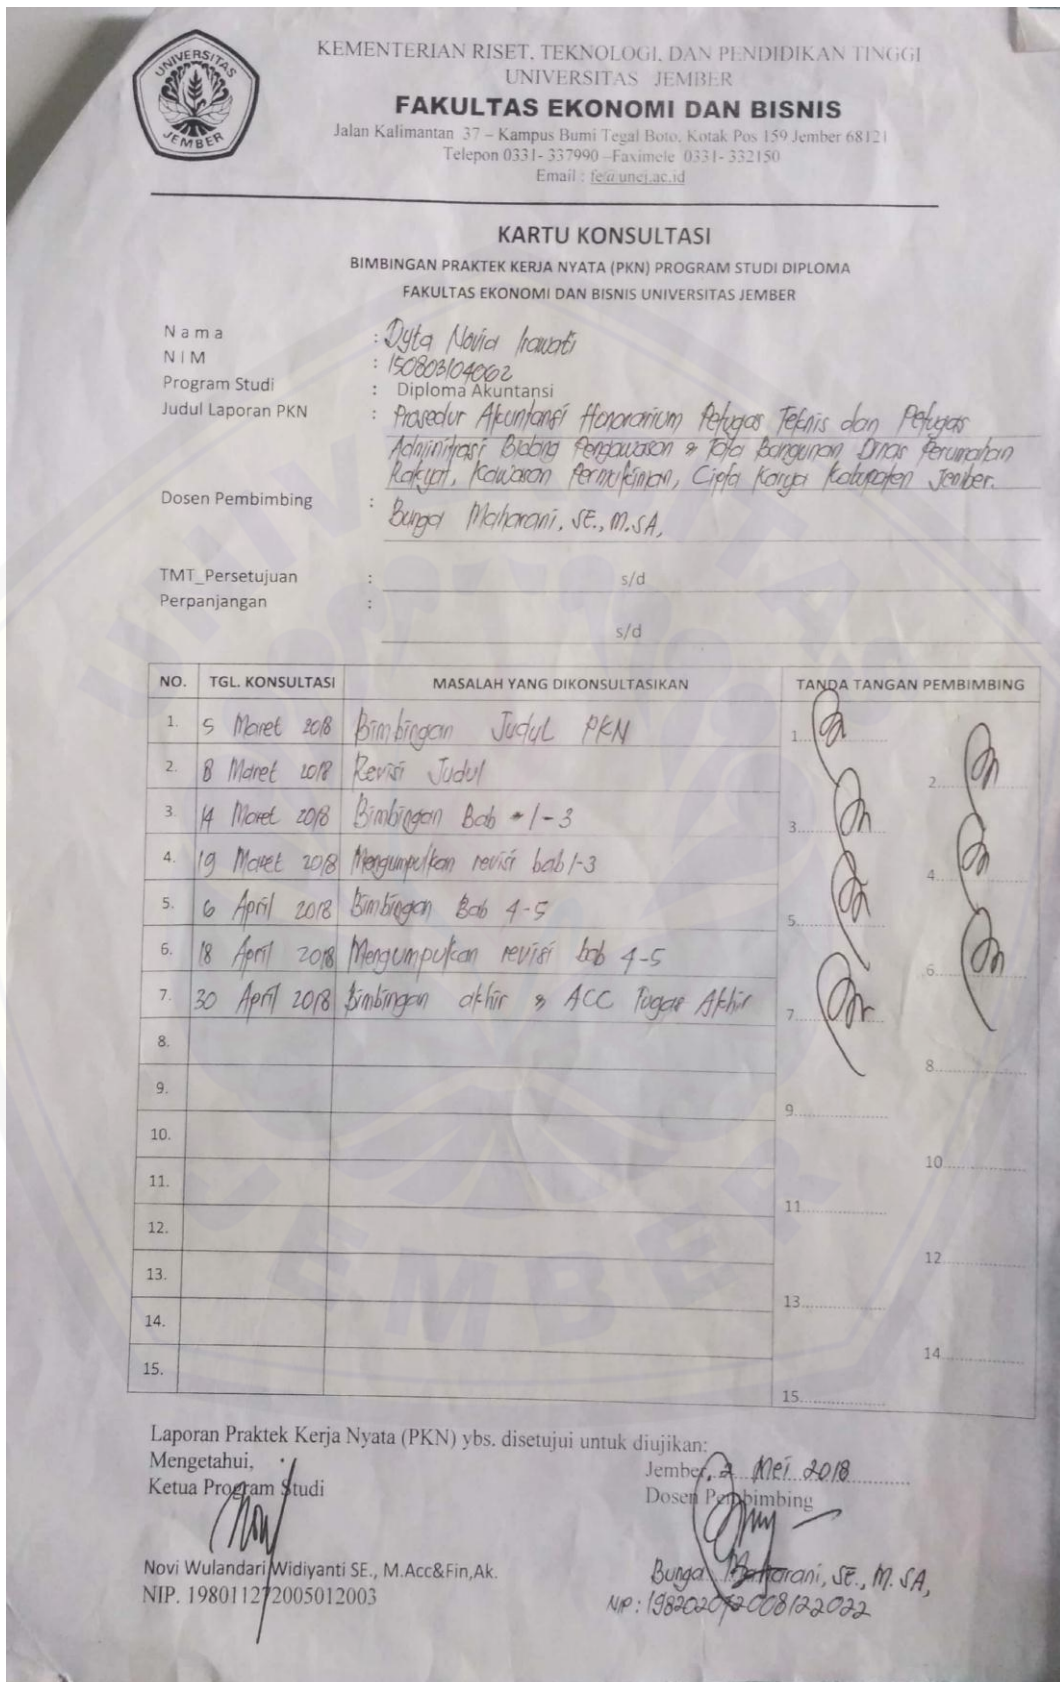 UNIVERSITAS
JEMBER
KEMENTERIAN RISET, TEKNOLOGI, DAN PENDIDIKAN TINGGI
UNIVERSITAS JEMBER
FAKULTAS EKONOMI DAN BISNIS
Jalan Kalimantan 37 – Kampus Bumi Tegal Boto, Kotak Pos 159 Jember 68121
Telepon 0331- 337990 –Faximele 0331- 332150
Email : fe@unej.ac.id
KARTU KONSULTASI
BIMBINGAN PRAKTEK KERJA NYATA (PKN) PROGRAM STUDI DIPLOMA
FAKULTAS EKONOMI DAN BISNIS UNIVERSITAS JEMBER
Nama : Dyta Novia Irawati
NIM : 150803104062
Program Studi : Diploma Akuntansi
Judul Laporan PKN : Prosedur Akuntansi Honorarium Petugas Teknis dan Petugas
Administrasi Bidang Pengawasan & Tata Bangunan Dinas Perumahan
Rakyat, Kawasan Permukiman, Cipta Karya Kabupaten Jember.
Dosen Pembimbing : Bunga Maharani, SE., M.SA,
TMT_Persetujuan : s/d
Perpanjangan :
s/d
NO. TGL. KONSULTASI MASALAH YANG DIKONSULTASIKAN TANDA TANGAN PEMBIMBING
1. 5 Maret 2018 Bimbingan Judul PKN 1
2. 8 Maret 2018 Revisi Judul 2
3. 14 Maret 2018 Bimbingan Bab 1-3 3
4. 19 Maret 2018 Mengumpulkan revisi bab 1-3 4
5. 6 April 2018 Bimbingan Bab 4-5 5
6. 18 April 2018 Mengumpulkan revisi bab 4-5 6
7. 30 April 2018 Bimbingan akhir & ACC Tugas Akhir 7
8. 8
9. 9
10. 10
11. 11
12. 12
13. 13
14. 14
15. 15
Laporan Praktek Kerja Nyata (PKN) ybs. disetujui untuk diujikan:
Mengetahui,
Jember, 2 Mei 2018
Ketua Program Studi
Dosen Pembimbing
Novi Wulandari Widiyanti SE., M.Acc&Fin,Ak.
Bunga Maharani, SE., M.SA,
NIP. 198011272005012003
NIP :